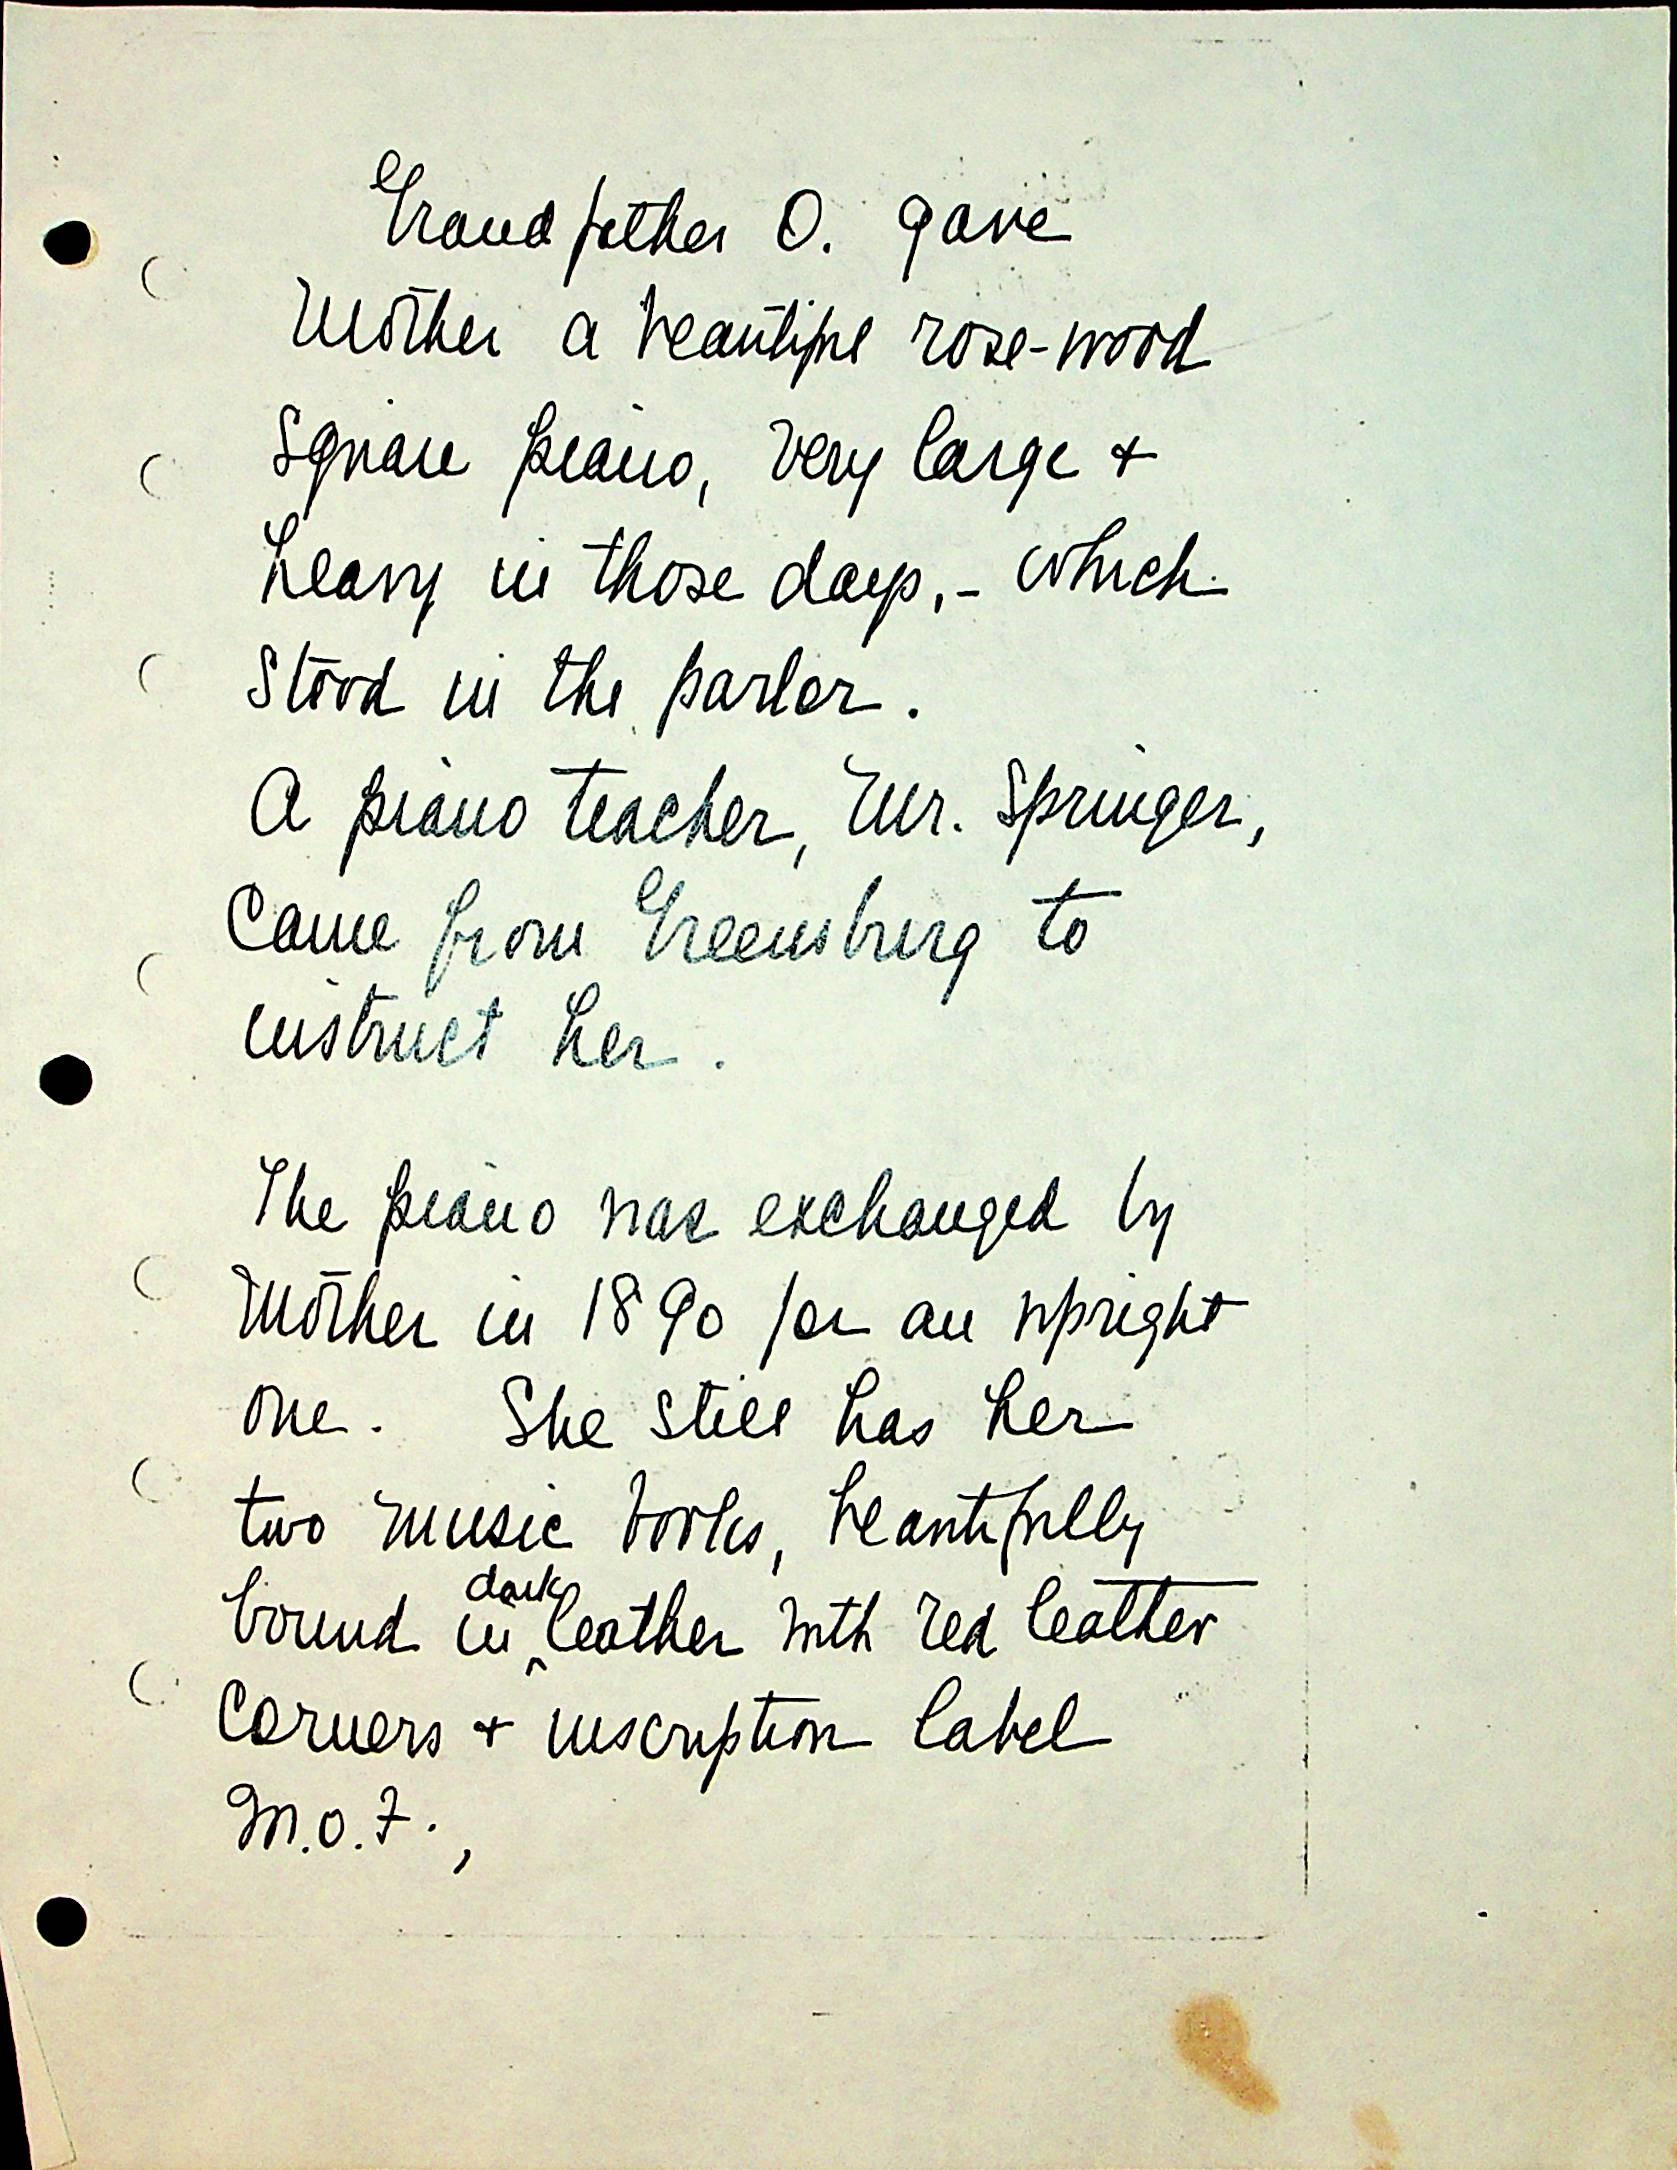 Grandfather O. gave
Mother a beautiful rose-wood
Square piano, very large +
heavy in those days,- which
stood in the parlor.
A piano teacher, Mr. Springer,
Came from Greensburg to
instruct her.
The piano was exchanged by
Mother in 1890 for an upright
one. She still has her
two music books, beautifully
bound in dark leather with red leather
Corners + inscription label
M.O.F.,